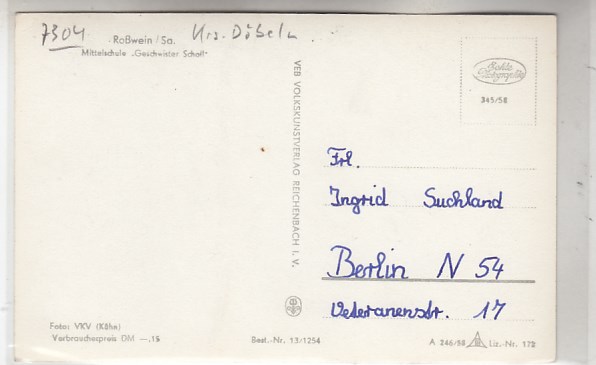 7304
Roßwein/Sa. Krs. Döbeln
Mittelschule „Geschwister Scholl"
Echte Photographie
345/58
VEB VOLKSKUNSTVERLAG REICHENBACH I. V.
Frl.
Ingrid Suchland
Berlin N 54
Veteranenstr. 17
Foto: VKV (Kühe)
Verbraucherpreis DM —.15
Best.-Nr. 13/1254
A 246/58 Liz.-Nr. 172